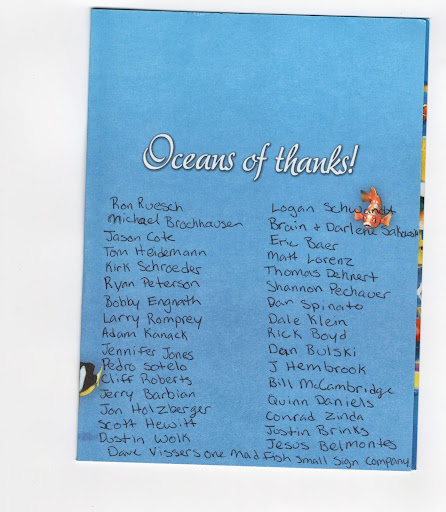 Oceans of thanks!
Ron Ruesch
Michael Brochhausen
Jason Cote
Tom Heidemann
Kirk Schroeder
Ryan Peterson
Bobby Engnath
Larry Romprey
Adam Kanack
Jennifer Jones
Pedro Sotelo
Cliff Roberts
Jerry Barbian
Jon Holzberger
Scott Hewitt
Dustin Wolk
Logan Schwandt
Brain + Darlene
Eric Baer
Matt Lorenz
Thomas Dehnert
Shannon Pechauer
Dan Spinato
Dale Klein
Rick Boyd
Dan Bulski
J Hembrook
Bill McCambridge
Quinn Daniels
Conrad Zinda
Justin Brinks
Jesus Belmontes
Dave Vissers One Mad Fish Small Sign Company